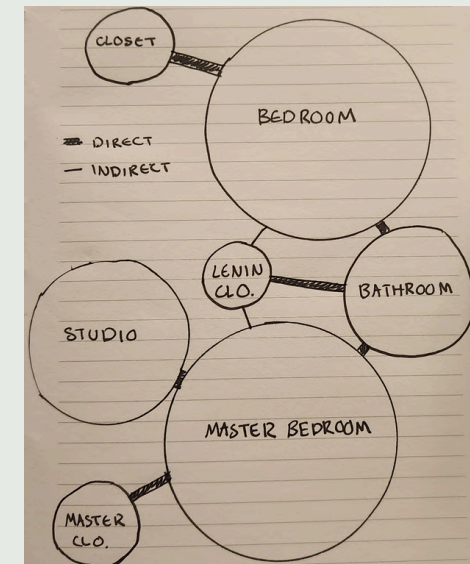 CLOSET
BEDROOM
DIRECT
INDIRECT
LENIN
CLO.
BATHROOM
STUDIO
MASTER BEDROOM
MASTER
CLO.